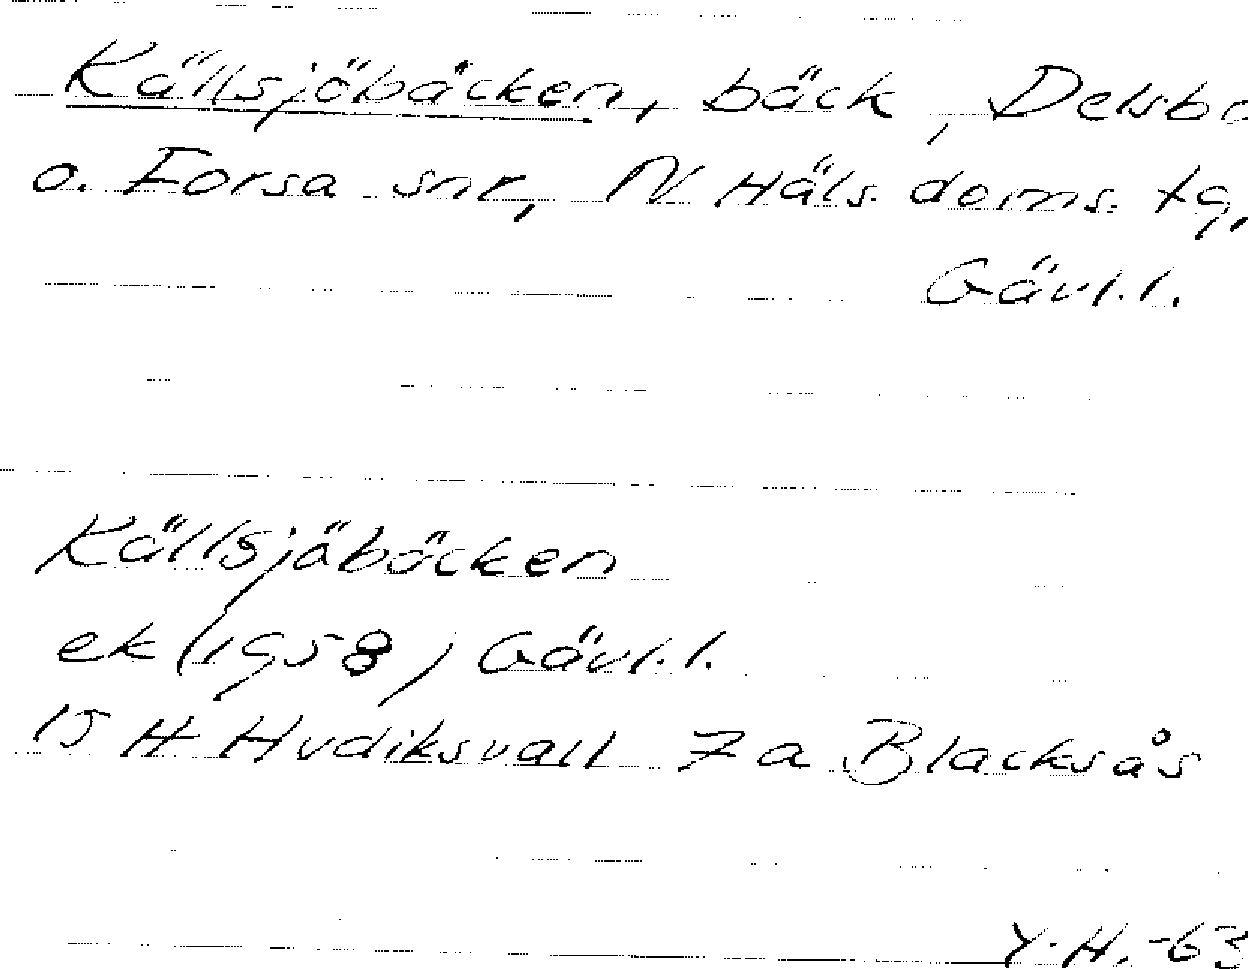 Källsjöbäcken, bäck, Delsbo
o. Forsa snr, N Häls. doms. tg,
Gävl.l.
Källsjäbäcken
ek (1958) Gävl.l.
15 H Hudiksvall 7 a Blacksås
Y.H. -63